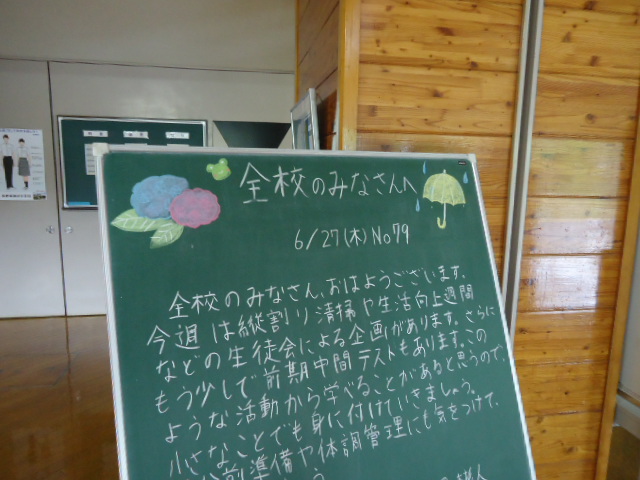 全校のみなさんへ
6/27(木)No79
全校のみなさん、おはようございます。
今週は縦割り清掃や生活向上週間
などの生徒会による企画があります。さらに
もう少しで前期中間テストもあります。この
ような活動から学べることがあると思うので、
小さなことでも身に付けていきましょう。
前準備や体調管理にも気をつけて、